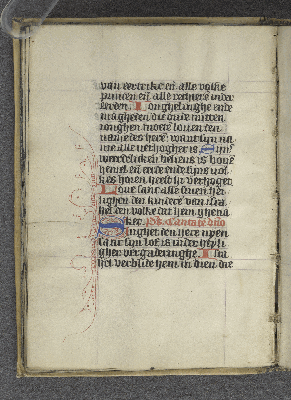 van eertrike en̄ alle volke
princen en̄ alle rechters inder
eerden. Jonghelinghe ende
magheden die oude mitten
ionghen moetē louen den
name des herē want sijn na
me alle verhoghet is Sijn
werdelicheit belieen is bouē
hemel en̄ eerde ende sijns vol
kes horen heeft hi verhogen
Loue sanc alle sinen hei
lighen den kinderē van isra
hel den volke dat hem ghena
ket. Ps. Cantate dn̄o
Singhet den here nyen
sanc sijn lof is inder heyli
gher vergaderinghe. Isra
hel verblide hem in dien die